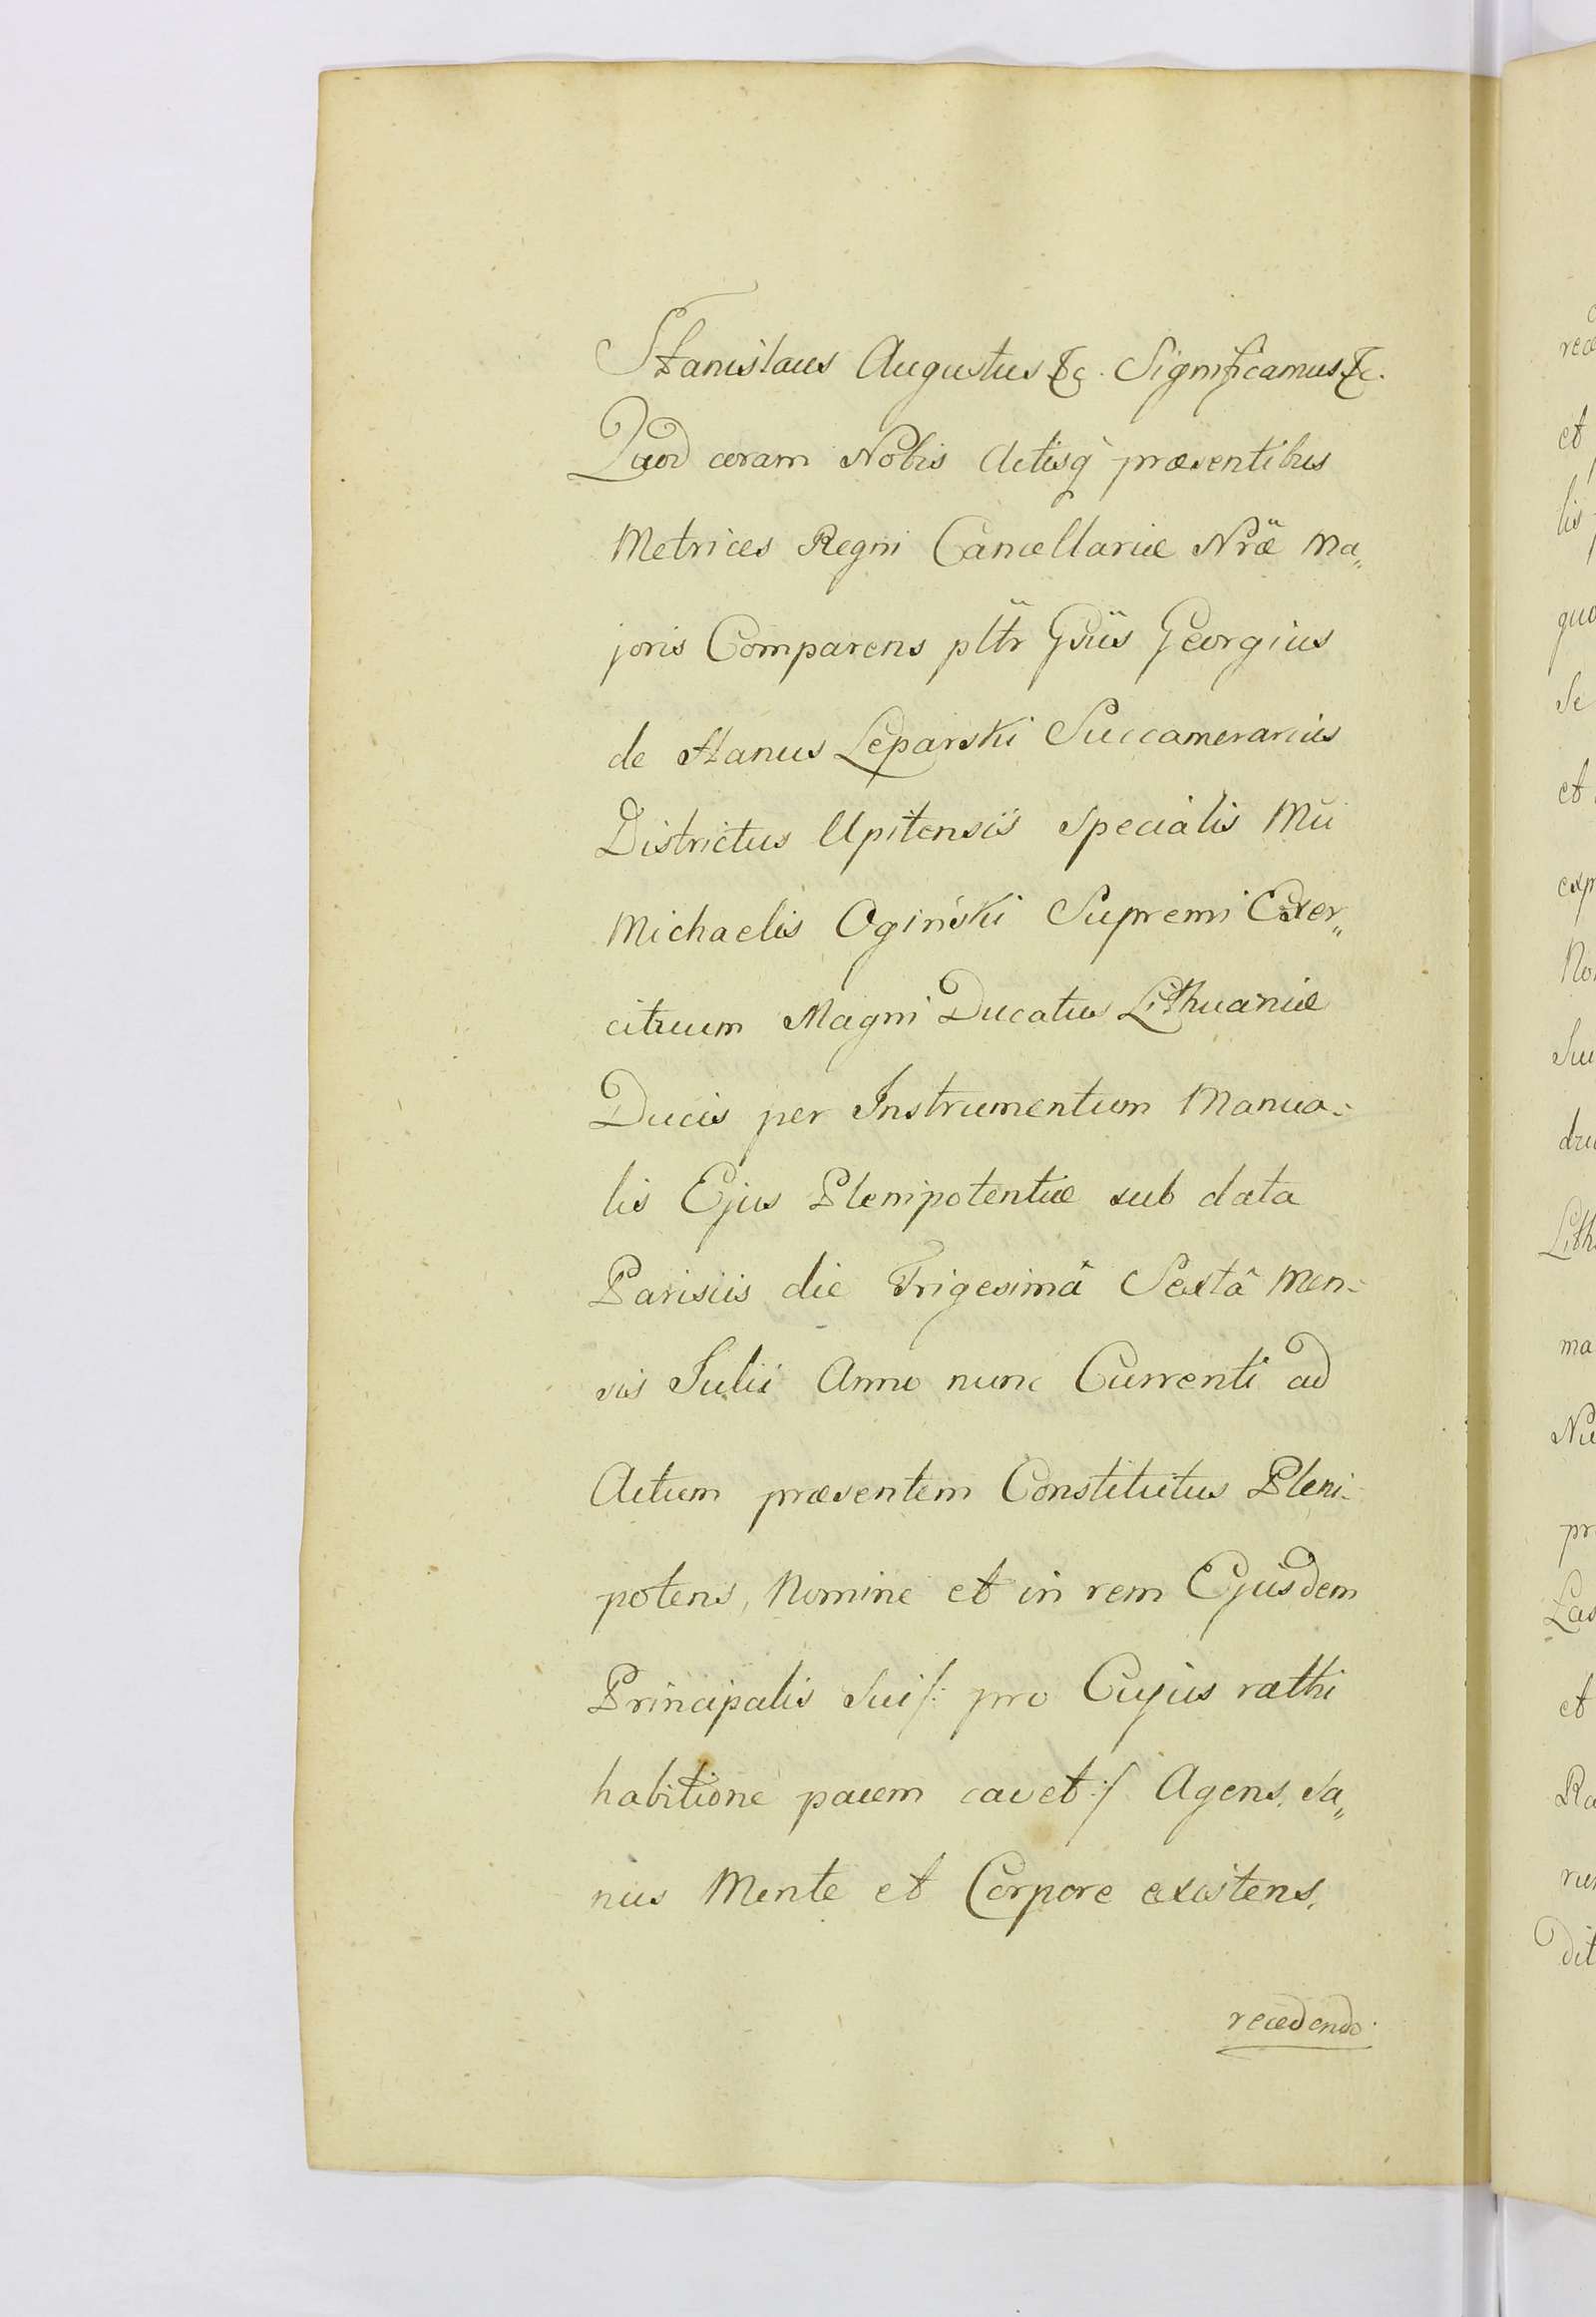 Stanislaus Augustus &c. Significamus &c.
Quod coram Nobis Actisq̀ præsentibus
Metrices Regni Cancellariæ Nr̈æ Ma„
joris Comparens pltr̈ Gsüs Georgius
de Stanus Leparski Succamerarius
Districtus Upitensis Specialis Mü
Michaelis Ogiński Supremi Exer„
cituum Magni Ducatus Lithuaniæ
Ducis per Instrumentum Manua-
lis Ejus Plenipotentiæ sub data
Parisiis die Trigesimâ Sextâ Men-
sis Julii Anno nunc Currenti ad
Actum præsentem Constitutus Pleni-
potens, Nomine et in rem Ejusdem
Principalis Sui /: pro Cujus rathi
habitione pacem cavet :/ Agens, Sa„
nus Mente et Corpore existens,
recedendo.